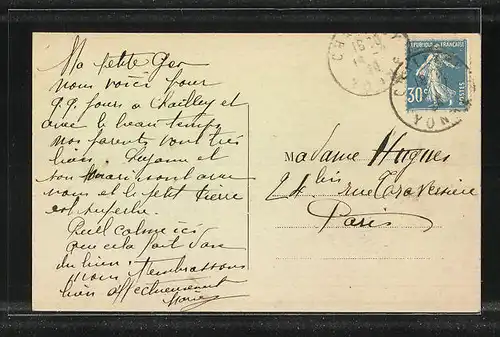 Ma petite Ger
nous voici pour
q.q. jours à Chailley et
avec le beau temps
nos parents vont très
bien. Suzanne et
son mari sont avec
nous et le petit Pierre
est superbe.
Quel calme ici
que cela fait donc
du bien. 
Nous t'embrassons
bien affectueusement
REPUBLIQUE FRANCAISE
30c
POSTES
YONNE
Madame Hugues
24 bis rue Traversière
Paris